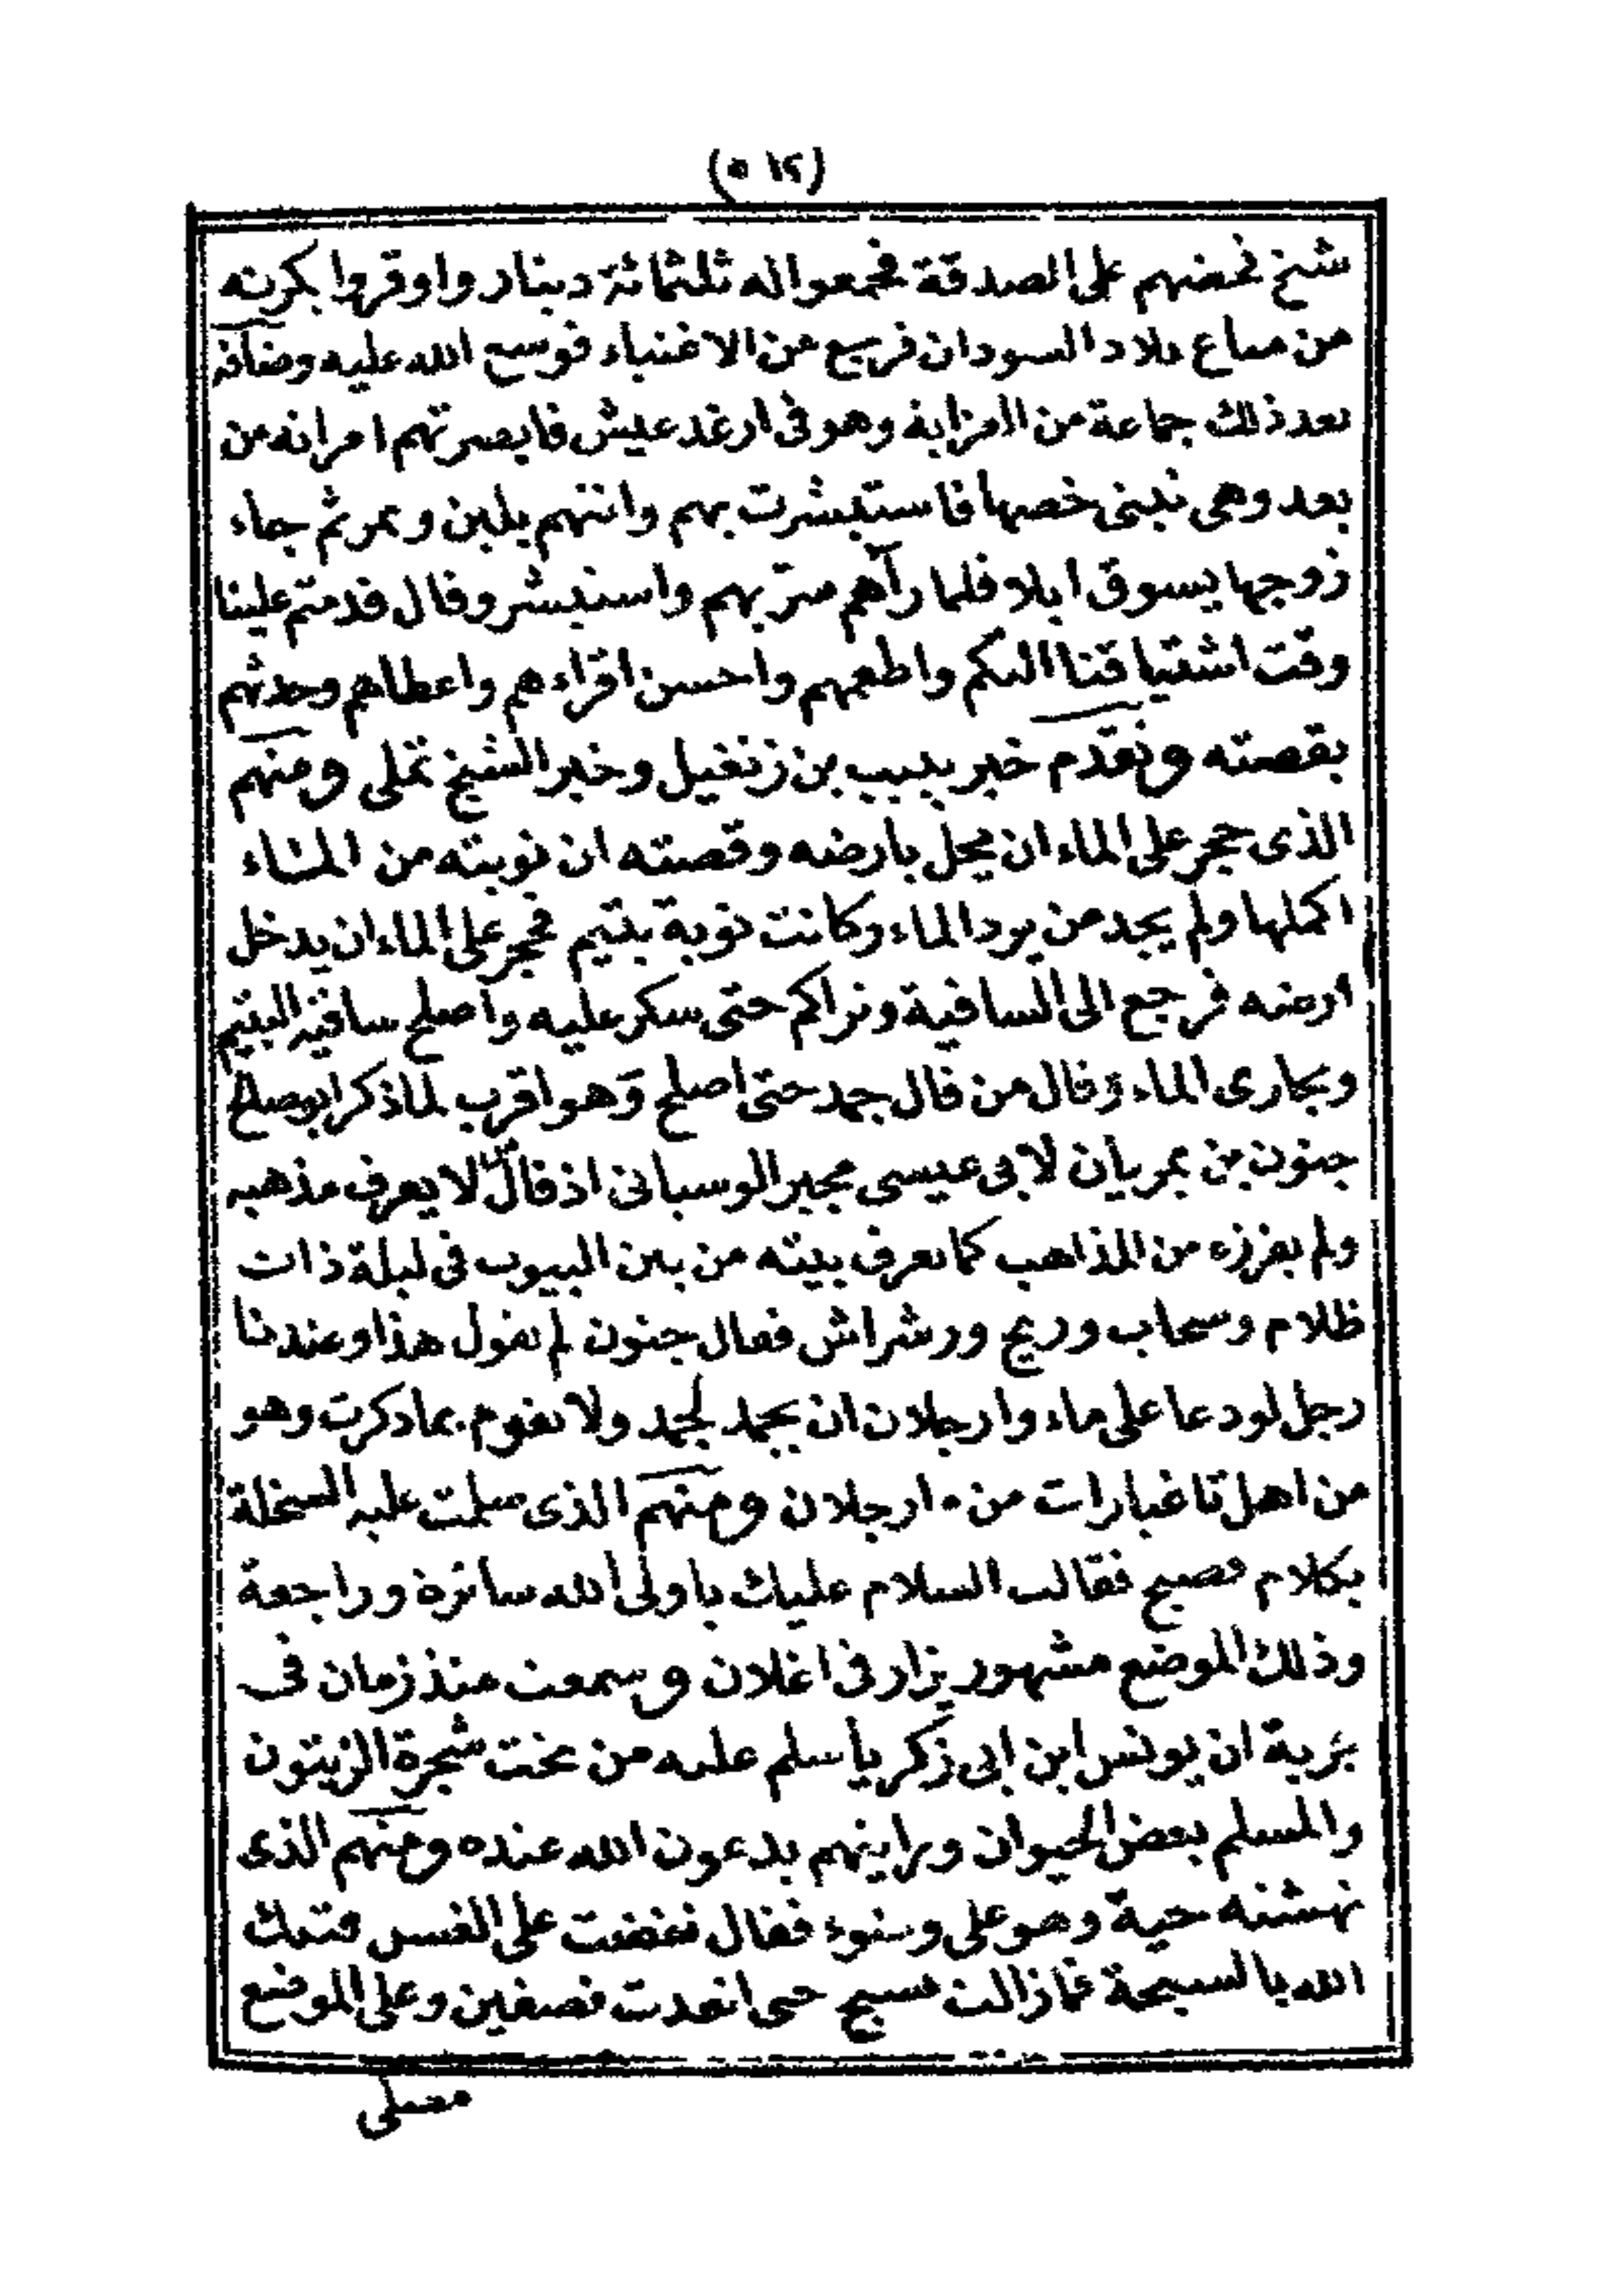 (٥١٢)
شيخ فحضهم على الصدقة فجمعوا له ثلثمائة دينار واوقروا بكرته
من متاع بلاد السودان فرجع من الاغنياء فوسع الله عليه وضافه
بعد ذلك جماعة من العزابة وهو فى ارغد عيش فابصرتهم امراته من
بعد وهى تبنى خصها فاستبشرت بهم واتتهم بلبن وتمر ثم جاء
زوجها يسوق ابلا فلما رآهم سرّ بهم واستبشر وقال قدمتم علينا
وقت اشتياقنا اليكم واطعمهم واحسن اقراءهم واعطاهم وحدثهم
بقصته وتقدم خبر يبيب بن زنغيل وخبر الشيخ تملى ومنهم
الذى حجر على الماء ان يحل بارضه وقصته ان نوبته من الماء
اكملها ولم يجد من يرد الماء وكانت نوبة يتيم فحجر على الماء ان يدخل
ارضه فرجع الى الساقية وتراكم حتى سكر عليه واصلح ساقية اليتيم
ومجارى الماء وقال من قال جمد حتى اصلح وهو اقرب لما ذكر ابو صالح
جنون بن يمريان لابى عيسى مجبر الوسيانى اذ قال لا يعرف مذهبه
ولم يفرزه من المذاهب كما يعرف بيته من بين البيوت فى ليلة ذات
ظلام وسحاب وريح ورشراش فقال جنون لم تقول هذا وعندنا
رجل لو دعا على ماء وارجلان ان يجمد لجمد ولا يقوم بما ذكرت وهو
من اهل تاغيارات من وارجلان ومنهم الذى سلمت عليه السخلة
بكلام فصيح فقالت السلام عليك يا ولى الله سائرة وراجعة
وذلك الموضع مشهور يزار فى اغلان وسمعت منذ زمان فى
بريّة ان يونس ابن ابى زكرياء سلم عليه من تحت شجرة الزيتون
والمسلم بعض الحيوان ورايتهم يدعون الله عنده ومنهم الذى
نهشته حية وهو على وضوء فقال نغضت على الغسل فتبك
الله يا لسيحة فما زالت تسبح حتى انقدت نصفين وعلى الموضع
مصلى